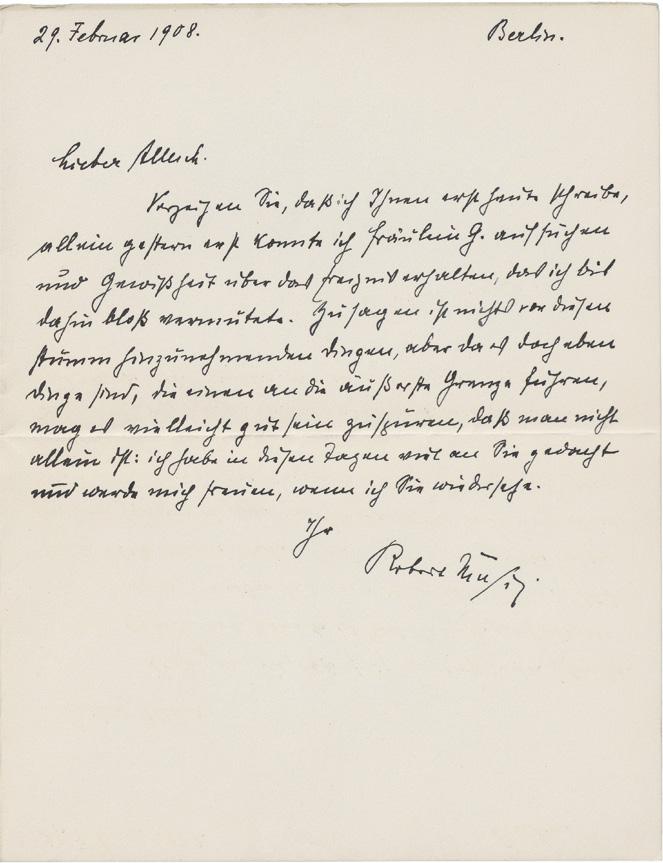 29. Februar 1908. Berlin.
Lieber Allesch.
Verzeihen Sie, daß ich Ihnen erst heute schreibe,
allein gestern erst konnte ich Fräulein G. aufsuchen
und Gewißheit über das Ereignis erhalten, das ich bis
dahin bloß vermutete. Zu sagen ist nichts vor diesen
stumm hinzunehmenden Dingen, aber da es doch eben
Dinge sind, die einen an die äußerste Grenze führen,
mag es vielleicht gut sein zu spüren, daß man nicht
allein ist: ich habe in diesen Tagen viel an Sie gedacht
und werde mich freuen, wenn ich Sie wiedersehe.
Ihr
Robert Musil